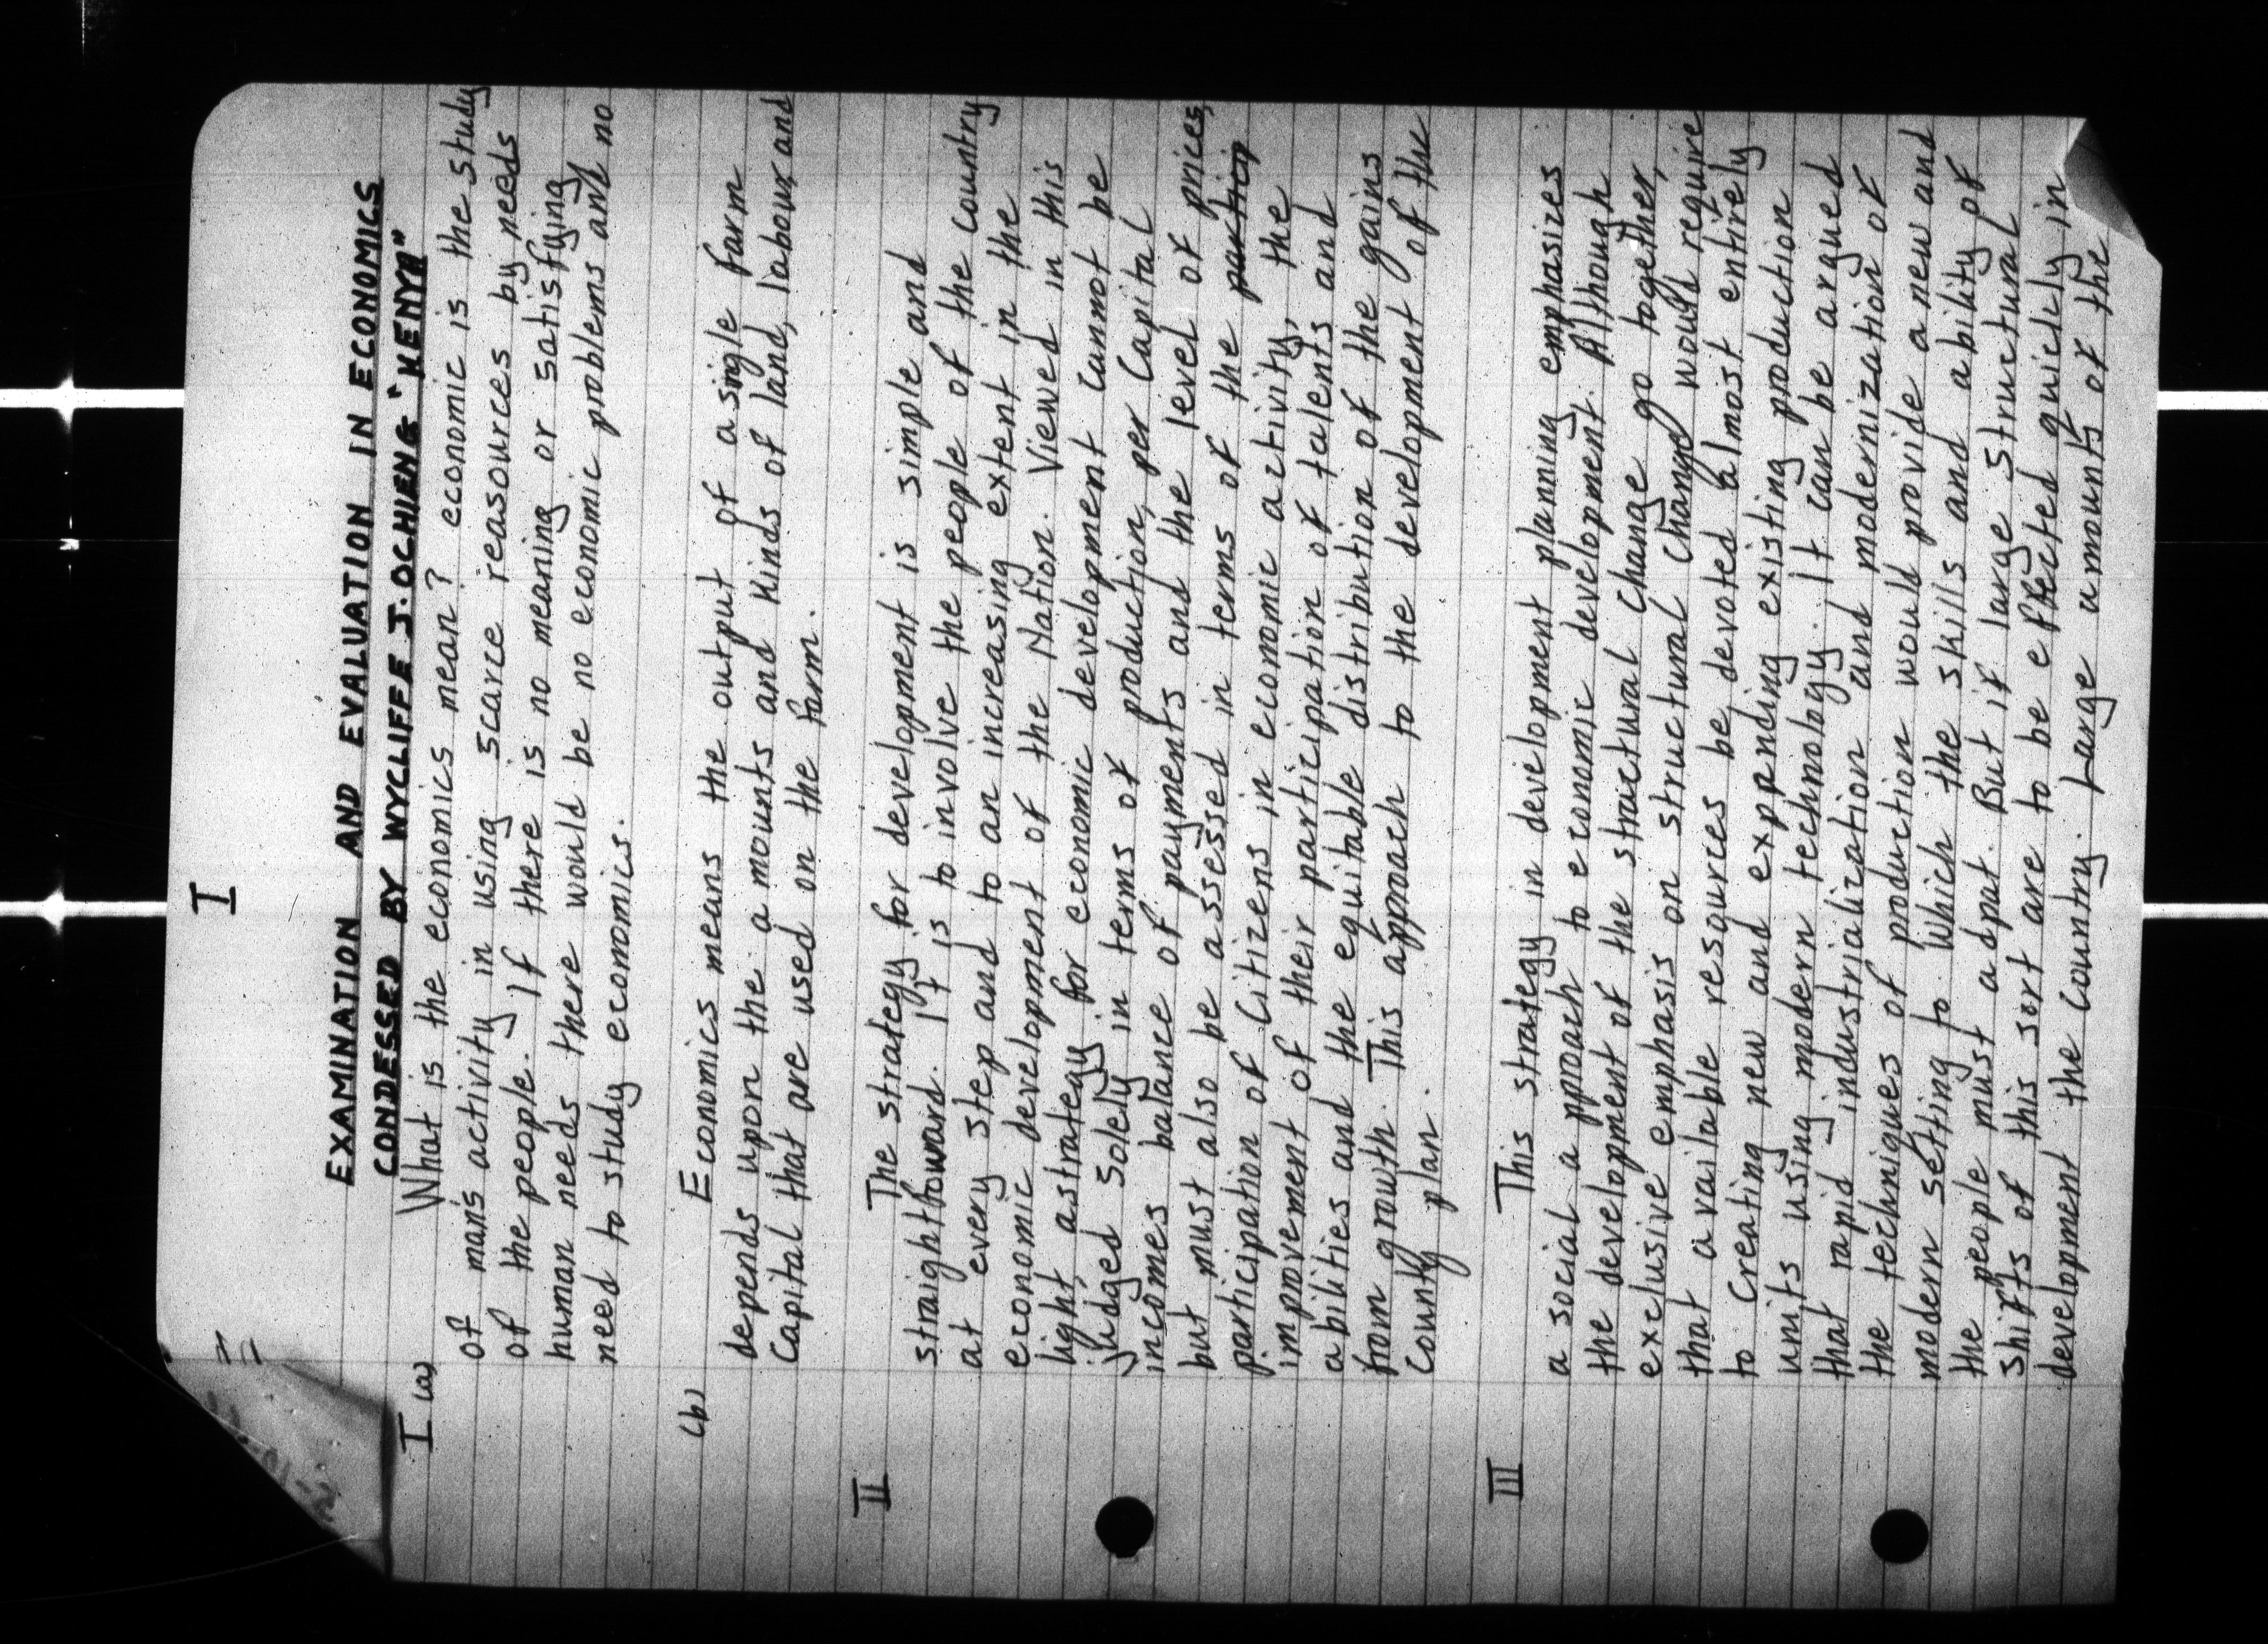 I
EXAMINATION AND EVALUATION IN ECONOMICS
CONDESSED BY WYCLIFFE J. OCHIENG "KENYA"
I (a) What is the economics mean? economic is the study
of man's activity in using scarce reasources by needs
of the people. If there is no meaning or satisfying
human needs there would be no economic problems and no
need to study economics.
(b) Economics means the output of a single farm
depends upon the amounts and kinds of land, labour and
Capital that are used on the farm.
II The strategy for development is simple and
straightfoward. It is to involve the people of the country
at every step and to an increasing extent in the
economic development of the Nation. Viewed in this
light, astrategy for economic development cannot be
judged solely in terms of production, per Capital
incomes balance of payments and the level of prices,
but must also be assessed in terms of the partici
participation of citizens in economic activity, the
improvement of their participation of talents and
abilities and the equitable distribution of the gains
from growth. This approach to the development of the
County plan.
III This strategy in development planning emphasizes
a social approach to economic development. Although
the development of the structural change go together,
exclusive emphasis on structural change would require
that available resources be devoted almost entirely
to creating new and expanding existing production
units using modern technology. It can be argued
that rapid industrialization and modernization of
the techniques of production would provide a new and
modern setting to which the skills and ability of
the people must adput. But if large structural
shifts of this sort are to be effected quickly in
development the country. Large amounts of the